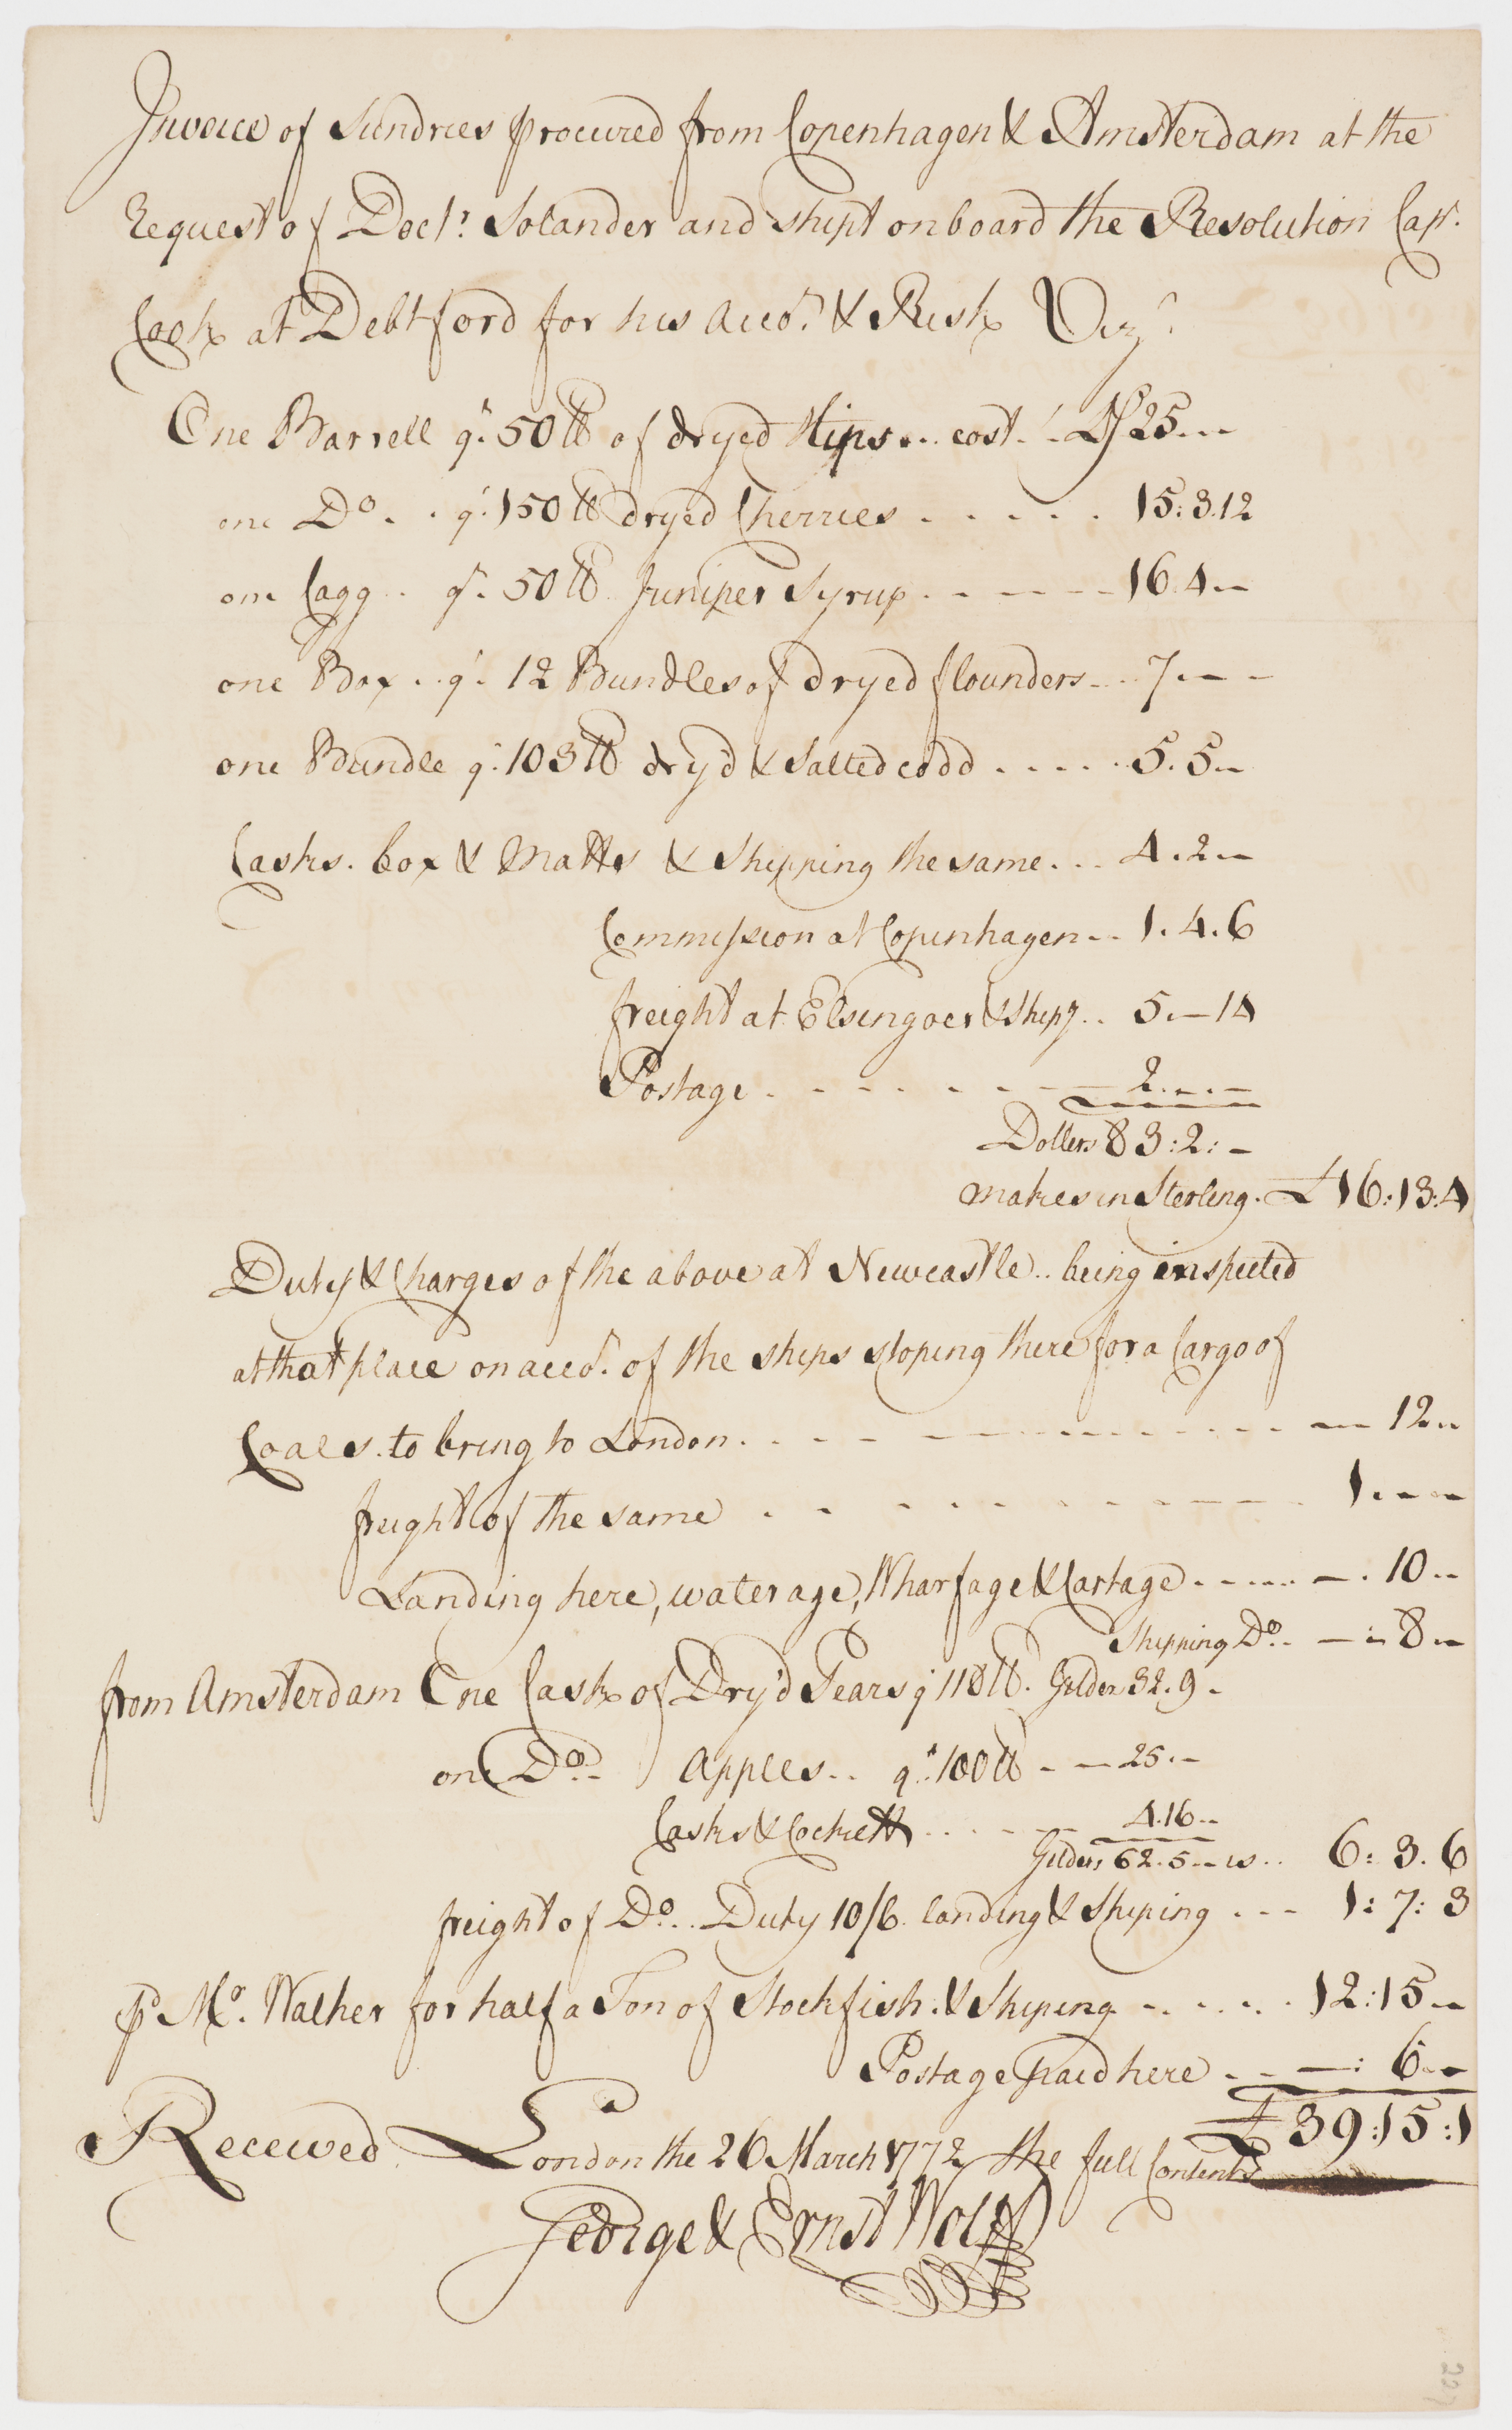 Invoice of Sundries procured from Copenhagen & Amsterdam at the
Request of Doctr. Solander and shipt onboard the Resolution Capt.
Cook at Debtford for his Acco.t & Risk Vizt.
One Barrell qt. 50 lb of dryed Hips .. cost .. D/ 25 .--
one Do. .. qt. 150 lb dryed Cherries . . . . . 15:3.12
one Cagg .. qt. 50 lb Juniper Syrup . - - - - 16.4 .-
one Box .. qt. 12 Bundles of dryed flounders - .. 7 .- -
one Bundle qt. 103 lb dry'd & Salted codd . . . . . 5.5 .-
Casks. box & Matts & Shipping the same . . . 4.2 .-
Commission at Copenhagen - .. 1.4.6
freight at Elsingoer & Ship.g .. 5.-14
Postage . - - - - - 2 .-.-
Dollers 83:2:-
makes in Sterling. £16:13:4
Duty & Charges of the above at Newcastle .. being inspected
at that place on acco.t of the ships stoping there for a Cargo of
Coales. to bring to London . . - - - - - - - - - 12 ..
freight of the same . - - - - - - - - 1 .- -
Landing here, waterage, Wharfage & Cartage . - - - - . 10 ..
Shipping Do. - - :- 8 .-
from Amsterdam One Cask of Dry'd Pears qt 118 lb. Gilders 32.9 -
one Do. - Apples .. qt. 100 lb - - 25 .-
Casks & Cockett . . . - - 4.16 ..
Gilders 62.5 .- is .. 6:3.6
freight of Do. .. Duty 10/6 landing & Shiping . - - 1:7:3
p Mr. Walker for half a Ton of Stockfish. & Shiping . - . . . . 12:15 .-
Postage paid here . - -: 6 .-
£39:15:1
Received London the 26 March 1772 the full Contents
George & Ernst Wolff